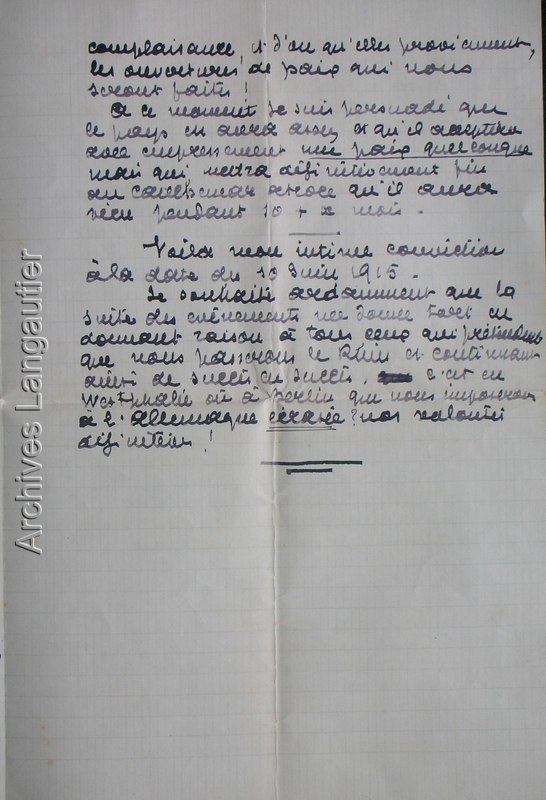 complaisance, et d'où qu'elles proviennent,
les ouvertures de paix qui nous
seront faites !
A ce moment je suis persuadé que
le pays en aura assez et qu'il acceptera
avec empressement une paix quelconque
mais qui mettra définitivement fin
au cauchemar atroce qu'il aura
vécu pendant 10 + x mois.
Voilà mon intime conviction
à la date du 10 Juin 1915.
Je souhaite ardemment que la
suite des évènements me donne tort en
donnant raison à tous ceux qui prétendent
que nous passerons le Rhin et continuant
ainsi de succès en succès, c'est en
Westphalie ou à Berlin que nous imposerons
à l'Allemagne écrasée ? nos volontés
définitives !
Archives Langautier